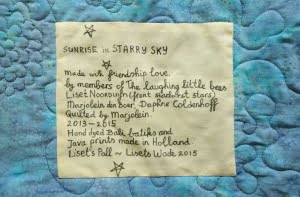 SUNRISE in STARRY SKY
made with friendship love.
by members of The laughing little bees
(front
Marjolein den Boer, Daphne Coldenhoff
Quilted by Marjolein.
2013-2015
Hand dyed Bali batiks and
Java prints made in Holland.
Liset's Pall ~ Lisets Wade 2015